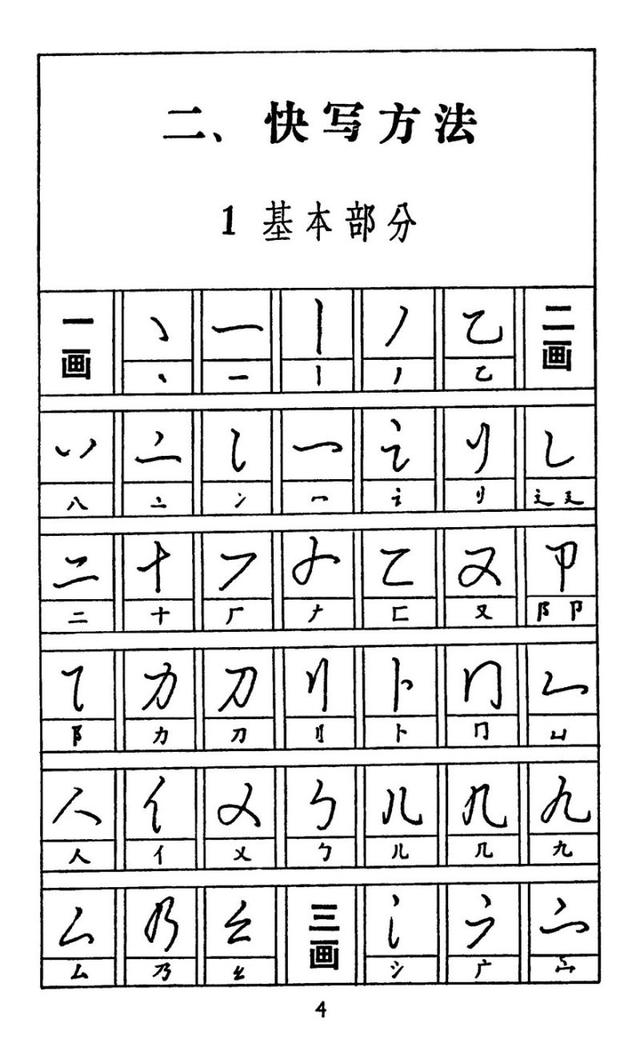 二、快写方法
1 基本部分
一画 丶 一 丨 丿 乙 二画
丶 一 丨 丿 乙
八 亠 冫 冖 讠 刂 辶 廴
二 十 厂 𠂇 匚 又 阝 卩
阝 力 刀 刂 卜 冂 凵
人 亻 乂 勹 儿 几 九
厶 乃 三画 氵 广 宀
4